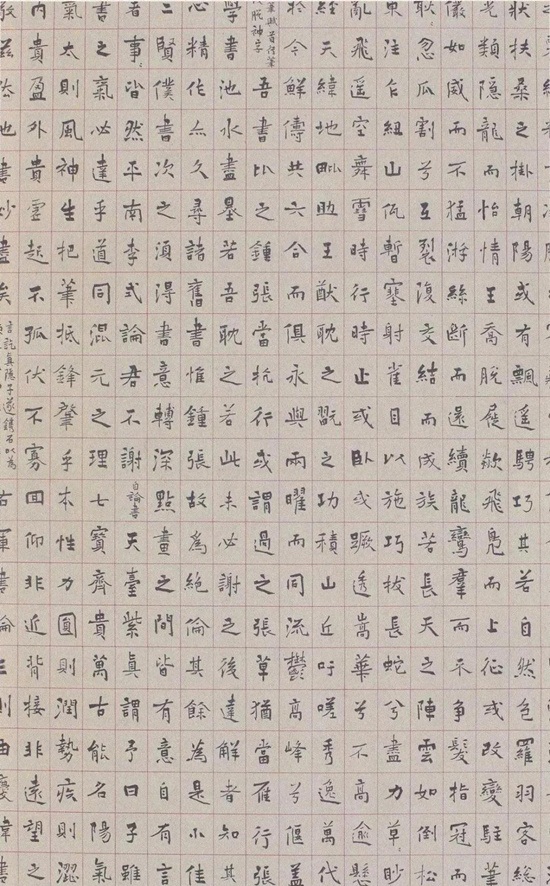 狀扶桑之掛朝陽或有飄遥騁巧其若自然包羅羽客總
光類隱龍而怡情王喬脫屣欻飛鳧而上征或改變駐筆
儼如威而不猛游絲斷而還續龍鸞羣而不争髮指冠而
耿忍瓜割兮互裂復交結而成族若長天之陣雲如倒松
東注乍紐山暫塞射雀目以施巧拔長蛇兮盡力草眇
亂飛遥空舞雪時行時止或臥或蹶透嵩華兮不高逾懸
經天緯地毗助王猷耽之翫之功積山丘吁嗟秀逸萬代
於今鮮儔共六合而俱永與兩曜而同流鬱高峰兮偃蓋
吾書比之鍾張當抗行或謂過之張草猶當雁行張
學書池水盡墨若吾耽之若此未必謝之後達解者知其
心精作亦久尋諸舊書惟鍾張故為絕倫其餘為是小佳
二賢僕書次之須得書意轉深點畫之間皆有意自有言
者事皆然平南李式論君不謝自論書天臺紫真謂予曰子雖
書之氣必達乎道同混元之理七寶齊貴萬古能名陽氣
氣太則風神生把筆抵鋒肇乎本性力圓則潤勢疾則澀
内貴盈外貴虛起不孤伏不寡回仰非近背接非遠望之